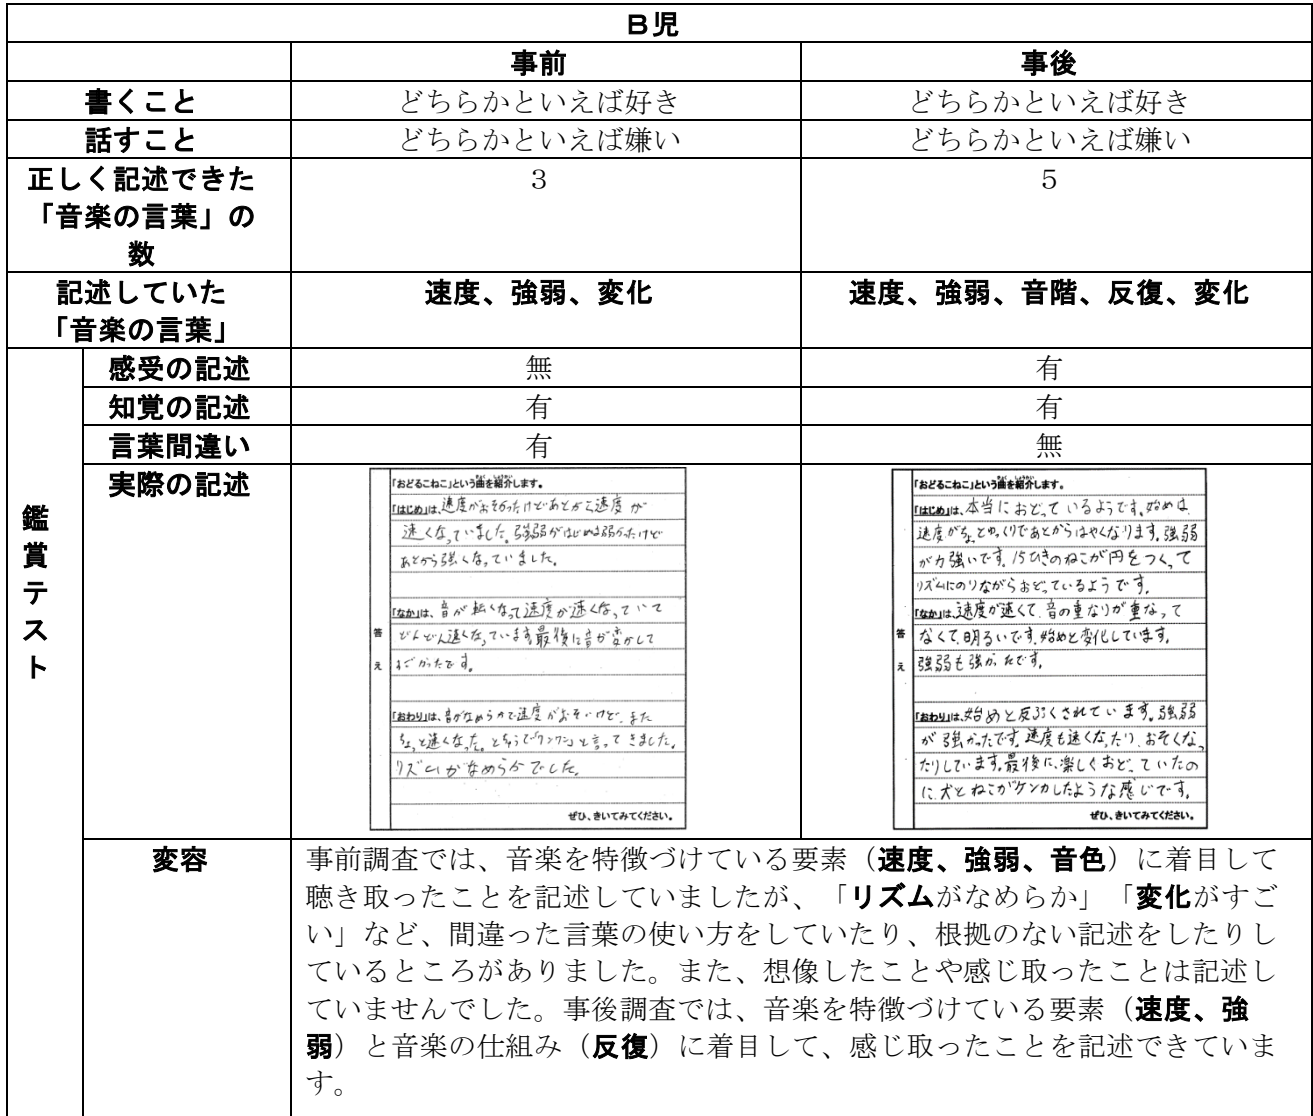 Ｂ児
事前 事後
書くこと どちらかといえば好き どちらかといえば好き
話すこと どちらかといえば嫌い どちらかといえば嫌い
正しく記述できた「音楽の言葉」の数 ３ ５
記述していた「音楽の言葉」 速度、強弱、変化 速度、強弱、音階、反復、変化
鑑賞テスト
感受の記述 無 有
知覚の記述 有 有
言葉間違い 有 無
実際の記述
「おどるこねこ」という曲を紹介します。
「はじめ」は、速度がおそかったけどあとから速度が
速くなっていました。強弱がはじめは弱かったけど
あとから強くなっていました。
「なか」は、音が なって速度が速くなっていて
どんどん速くなっています。最後に音が変かして
すごかったです。
「おわり」は、音がなめらかで速度がおそいけど、また
ちょっと速くなった。とちゅうで「ワンワン」と言ってきました。
リズムがなめらかでした。
ぜひ、きいてみてください。
答え
「おどるこねこ」という曲を紹介します。
「はじめ」は、本当におどっているようです。始めは
速度がちょとゆっくりであとからはやくなります。強弱
が力強いです。15ひきのねこが円をつくって
リズムにのりながらおどっているようです。
「なか」は、速度が速くて、音の重なりが重なって
なくて、明るいです。始めと変化しています。
強弱も強かったです。
「おわり」は、始めと反ぷくされています。強弱
が強かったです。速度も速くなったり、おそくなっ
たりしています。最後に、楽しくおどっていたの
に、犬とねこがケンカしたような感じです。
ぜひ、きいてみてください。
答え
変容
事前調査では、音楽を特徴づけている要素（速度、強弱、音色）に着目して
聴き取ったことを記述していましたが、「リズムがなめらか」「変化がすご
い」など、間違った言葉の使い方をしていたり、根拠のない記述をしたりし
ているところがありました。また、想像したことや感じ取ったことは記述し
ていませんでした。事後調査では、音楽を特徴づけている要素（速度、強
弱）と音楽の仕組み（反復）に着目して、感じ取ったことを記述できていま
す。